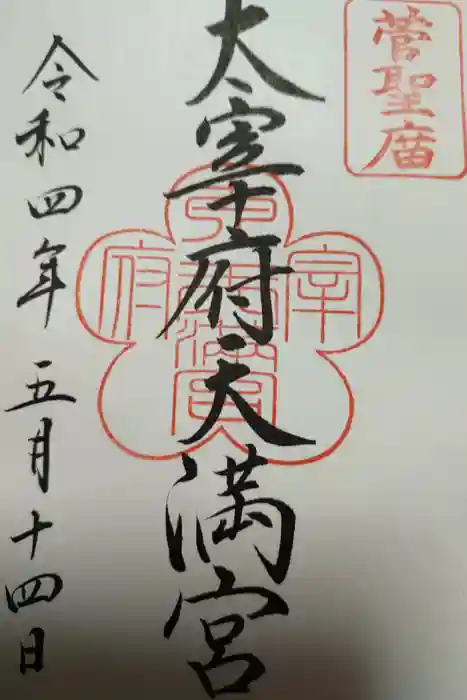 菅聖廟
太宰府天満宮
令和四年 五月十四日